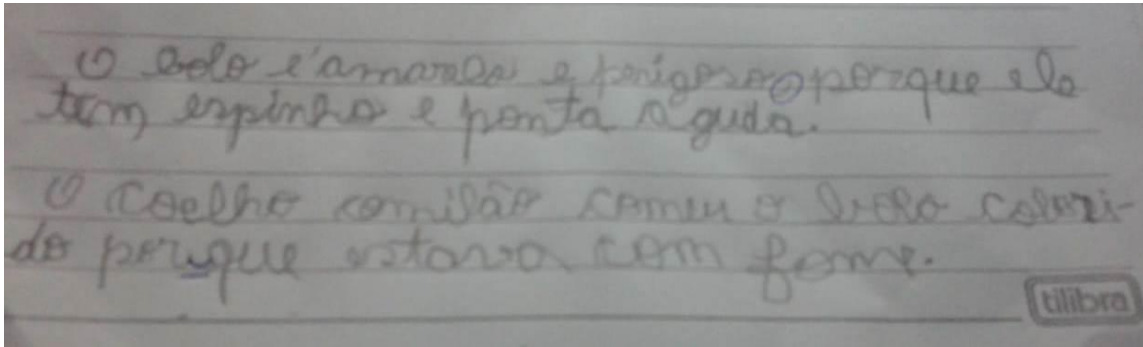 O bolo é amarelo e perigoso porque ele
tem espinho e ponta aguda.
O coelho comilão comeu o bolo colori-
do porque estava com fome.
tilibra